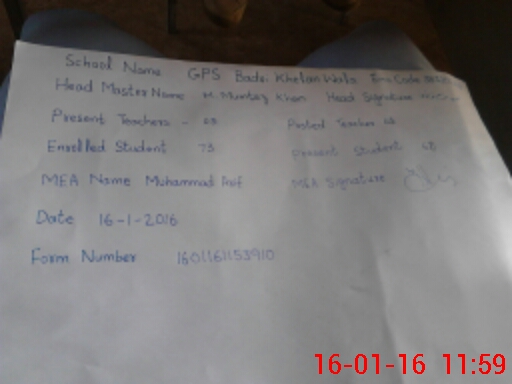 School Name GPS Badi Khelan Wala Emis Code
Head Master Name M. Mumtaz Khan Head Signature
Present Teachers - 03 Posted Teacher 03
Enrolled Student 73 present Student 68
MEA Name Muhammad Asif MEA Signature
Date 16-1-2016
Form Number 1601161153910
16-01-16 11:59